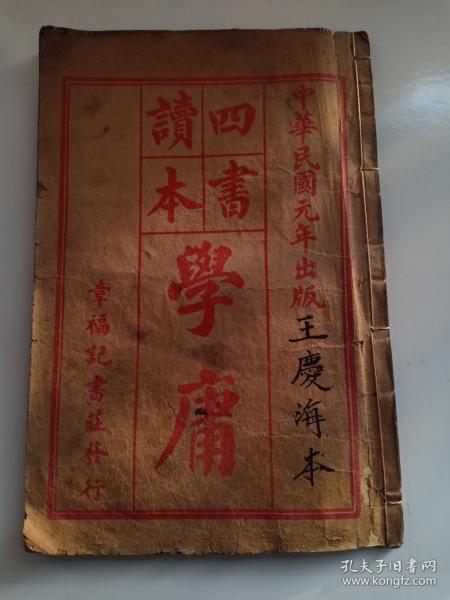 中華民國元年出版
王慶海本
四書
讀本
學庸
章福記書莊發行
孔夫子旧书网
www.kongfz.com